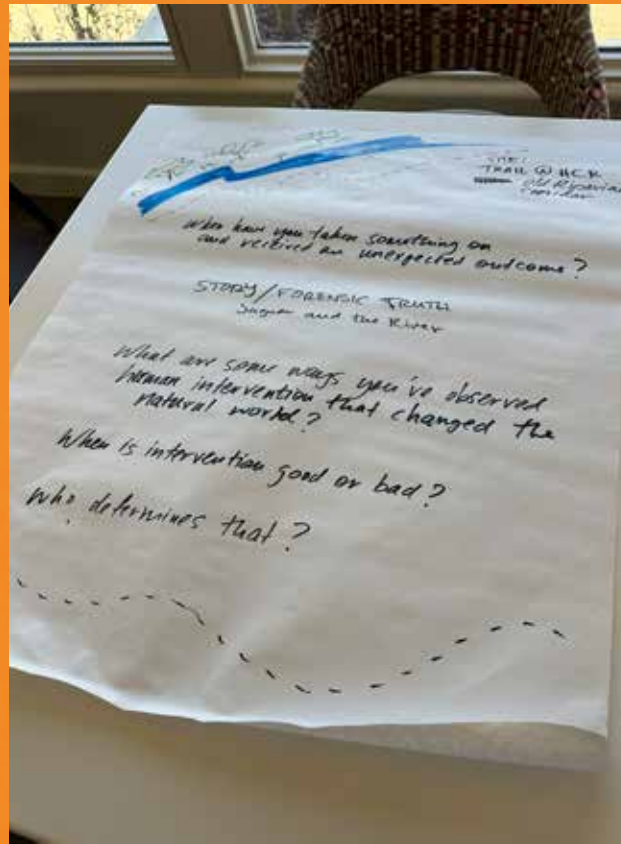 TRAIL @ HCR
Old Riparian
Corridor
When have you taken something on
and received an unexpected outcome?
STORY/FORENSIC TRUTH
Sugar and the River
What are some ways you've observed
human intervention that changed the
natural world?
When is intervention good or bad?
Who determines that?